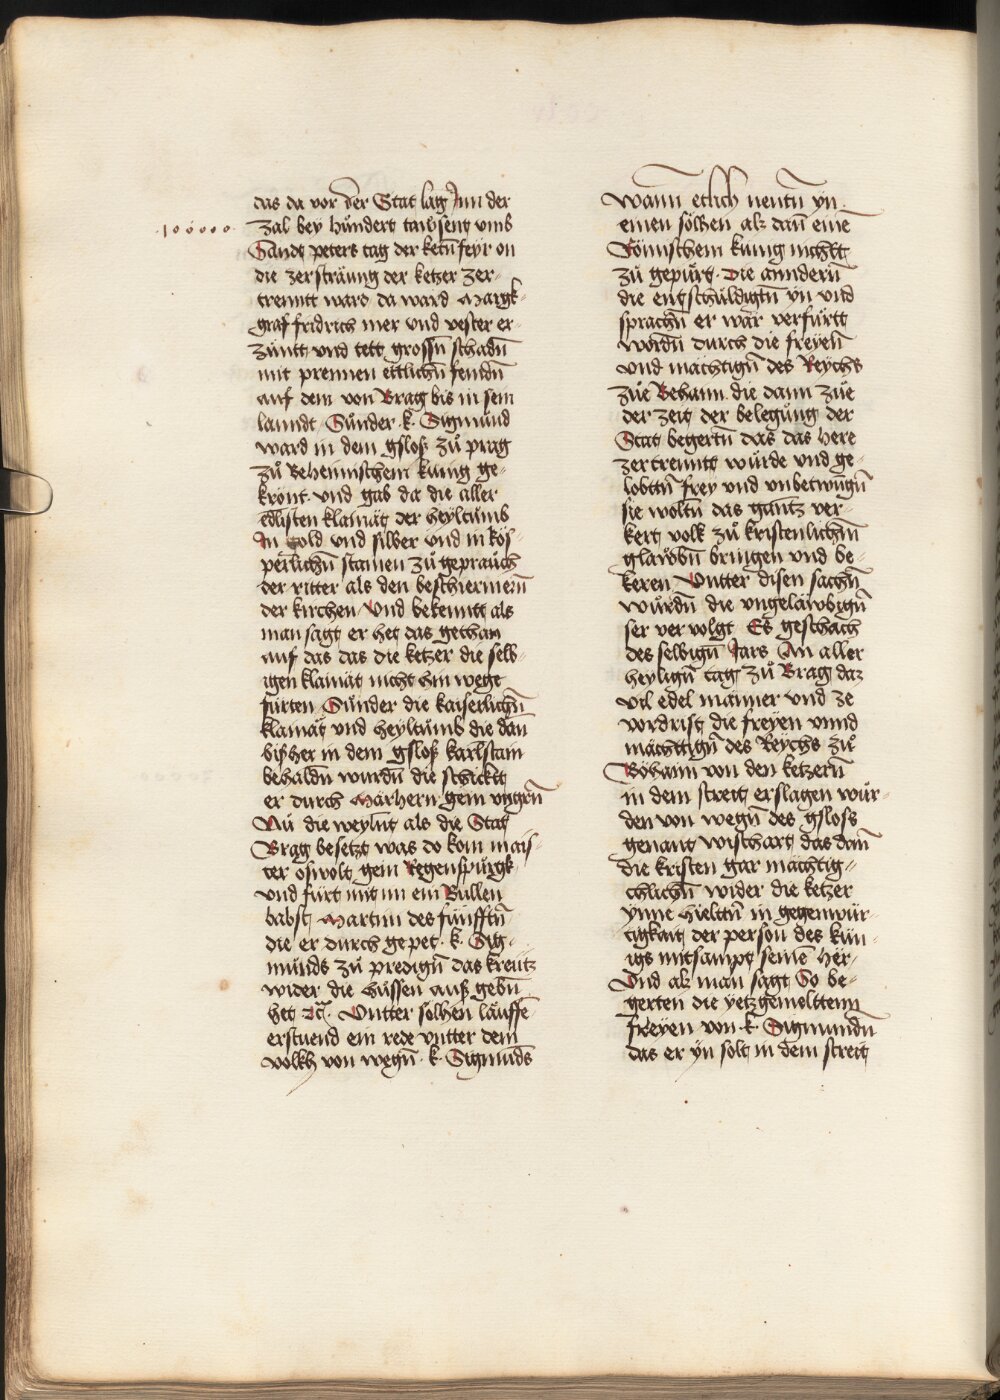 das da vor der Stat lag Jnn der
100000
zal bey hündert taüsent vmb
Sandt peters tag der ketn̄ feyr on
die zersträung der ketzer zer-
trennt ward da ward Margk-
graf fridrich mer vnd vester er-
züntt vnd tett grossn̄ schadn̄
mit prennen ettlichn̄ feindn̄
auf dem von Brag bis in sein
lanndt Sunder k. Sigmünd
ward in dem gslos zů prag
zů Beheimischem kunig ge-
krönt vnd gab da die aller
edlisten klainät der heyltumb
Jn gold vnd silber vnd in kös-
perlichn̄ stainen zů gepraüch
der ritter als den beschiermern̄
der kirchen Vnd bekennt als
man sagt er het das gethan
auf das das die ketzer die selb-
igen klainät nicht hin wege
fürten Sünder die kaiserlichn̄
klainät vnd heyltumb die dan̄
bißher in dem gsloß karlstain
behaldn̄ wurdn̄ die schicktt
er durch Märhern gein vngrn̄
Nu die weylnt als die Stat
Brag besetzt was do kom mais-
ter oswolt gein Regenspürgk
vnd fürt mit im ein Bullen
babst Martini des fünfftn̄
die er durch gepet k. Sig-
münds zů predign̄ das kreütz
wider die hüssen auß gebn̄
het ꝛc̄. Vntter solhen läuffe
erstuend ein rede vntter dem
volkh von wegn̄ k. Sigmūds
wann̄ etlich nentn̄ yn
einen sölhen als dan̄ einē
Römischem kunig nichtt
zů gepürt. Die anndern̄
die entschüldigtn̄ yn vnd
sprachn̄ er wär verfürtt
wordn̄ durch die freyen̄
vnd mächtign̄ des Reychs
züe Behaim. die dann züe
der zeit der belegüng der
Stat begertn̄ das das here
zertrenntt würde vnd ge-
lobttn̄ frey vnd vnbetwūgn̄
sie woltn̄ das gantz ver-
kert volk zů kristenlichm̄
glawbn̄ bringen vnd be-
keren Vntter disen sachn̄
würdn̄ die vngeläwbign̄
ser vervolgt Es geschach
des selbign̄ Jars An aller
heylign̄ tag zů Brag daz
vil edel männer vnd ze
vordrist die freyen vnnd
mächttign̄ des Reychs zů
Böhaim von den ketzern̄
in dem streit erslagen wür-
den von wegn̄ des gsloss
genant wischart das dan̄
die kristen gar mächtig-
chlichn̄ wider die ketzer
ynne hielttn̄ in gegenwür-
tigkait der person des kün-
igs mitsampt seinē her
Vnd als man sagt So be-
gerten die yetzgemelttenn
freyen von k. Sigmundn̄
das er yn solt in dem streit